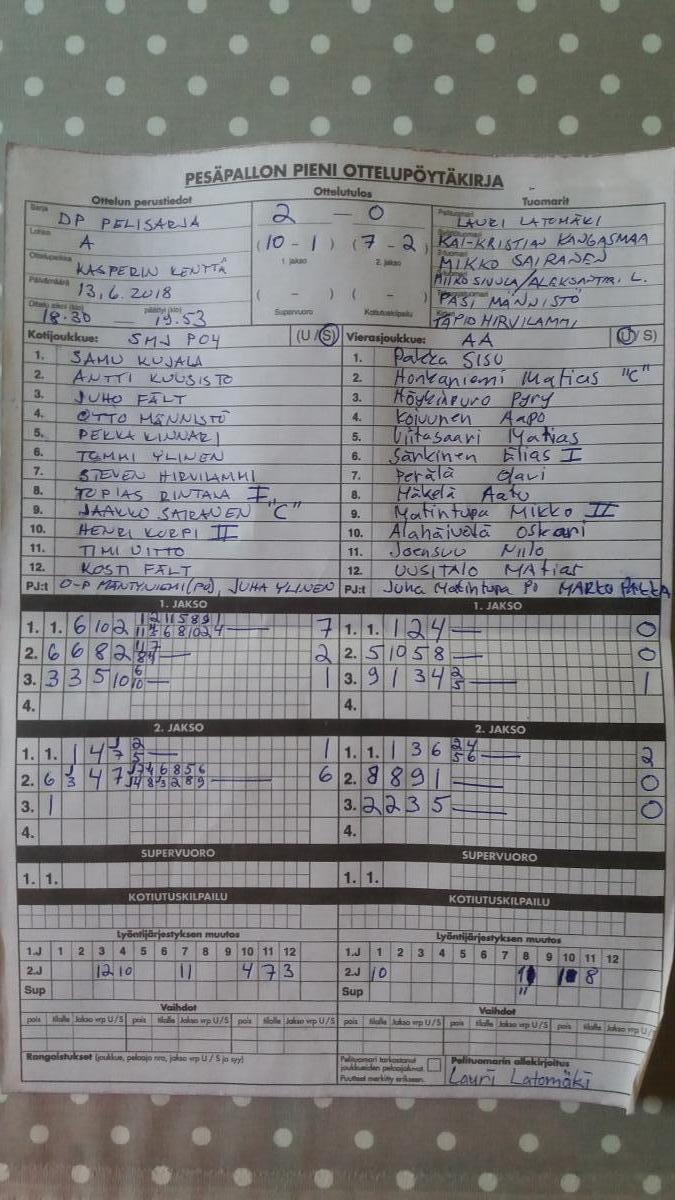 PESÄPALLON PIENI OTTELUPÖYTÄKIRJA
Ottelun perustiedot Ottelutulos Tuomarit
Sarja DP PELISARJA
Lohko A
Ottelupaikka KASPERIN KENTTÄ
Päivämäärä 13.6.2018
Ottelu alkoi (klo) 18.30 päättyi (klo) 19.53
2 — 0
(10 - 1) (7 - 2)
1. jakso 2. jakso
( - ) ( - )
Supervuoro Kotiutuskilpailu
Pelituomari LAURI LATOMÄKI
KAI-KRISTIAN KANGASMAA
MIKKO SAIRANEN
/ALEKSANTERI L.
PASI MÄNNISTÖ
TAPIO HIRVILAMMI
Kotijoukkue: SMJ PO4 (U/S)
1. SAMU KUJALA
2. ANTTI KUUSISTO
3. JUHO FÄLT
4. OTTO MÄNNISTÖ
5. PEKKA KINNARI
6. TOMMI YLINEN
7. STEVEN HIRVILAMMI
8. TOPIAS RINTALA I
9. JAAKKO SAIRANEN "C"
10. HENRI KORPI II
11. TIMI UITTO
12. KOSTI FÄLT
PJ:t O-P MÄNTYNIEMI (PO), JUHA YLINEN
Vierasjoukkue: AA (U/S)
1. Pakka Sisu
2. Honkaniemi Matias "C"
3. Höykinpuro Pyry
4. Koivunen Aapo
5. Viitasaari Matias
6. Särkinen Elias I
7. Perälä Olavi
8. Mäkelä Aatu
9. Matintupa Mikko II
10. Alahäivälä Oskari
11. Joensuu Niilo
12. UUSITALO MAtias
PJ:t Juha Matintupa PO MARKO PAKKA
1. JAKSO
1. 1. 6 10 2 7
2. 6 6 8 2 2
3. 3 3 5 10 1
4.
1. JAKSO
1. 1. 1 2 4 — 0
2. 5 10 5 8 — 0
3. 9 1 3 4 2 5 — 1
4.
2. JAKSO
1. 1. 1 4 1
2. 6 4 7 6
3. 1
4.
2. JAKSO
1. 1. 1 3 6 2 4 5 6 — 2
2. 8 8 9 1 — 0
3. 2 2 3 5 — 0
4.
SUPERVUORO
1. 1.
SUPERVUORO
1. 1.
KOTIUTUSKILPAILU
KOTIUTUSKILPAILU
Lyöntijärjestyksen muutos
1.J 1 2 3 4 5 6 7 8 9 10 11 12
2.J 12 10 11 4 7 3
Sup
Lyöntijärjestyksen muutos
1.J 1 2 3 4 5 6 7 8 9 10 11 12
2.J 10 8
Sup
Vaihdot
pois tilalle Jakso vrp U/S pois tilalle Jakso vrp U/S pois tilalle Jakso vrp U/S
Vaihdot
pois tilalle Jakso vrp U/S pois tilalle Jakso vrp U/S pois tilalle Jakso vrp U/S
Rangaistukset (joukkue, pelaaja nro, jakso vrp U / S ja syy)
Pelituomari tarkastanut
joukkueiden pelaajaluvat.
Puutteet merkitty erikseen.
Pelituomarin allekirjoitus
Lauri Latomäki